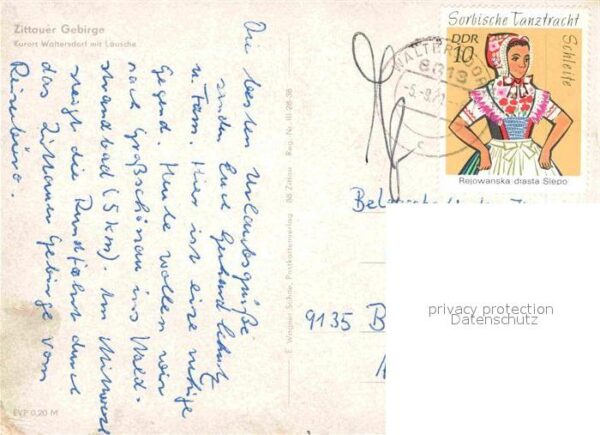 Zittauer Gebirge
Kurort Waltersdorf mit Lausche
Die besten Urlaubsgrüße
senden Euch Gerhard
u. Fam. Hier ist eine ruhige
Gegend. Heute wollen wir
nach Großschönau ins Wald-
strandbad (5 km). Am Mittwoch
steigt die Rundfahrt durch
das Zittauer Gebirge vom
Reisebüro.
EVP 0,20 M
E. Wagner Söhne, Postkartenverlag 88 Zittau Reg. Nr. III-28-58
WALTERSDORF
Sorbische Tanztracht
DDR
10
Schleife
Rejowanska drasta Slepo
9135 B
privacy protection
Datenschutz